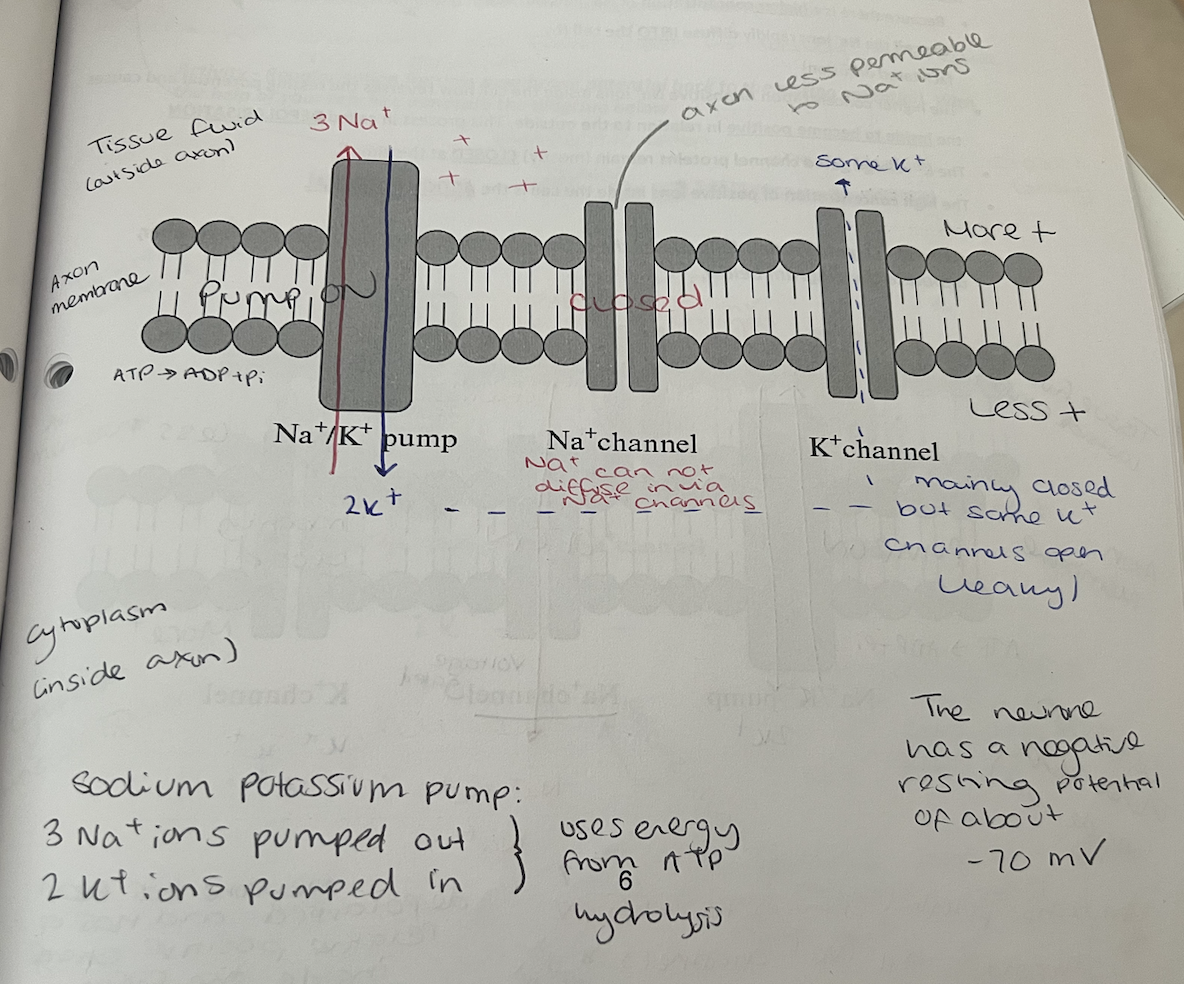 axon less permeable
to Na+ ions
Tissue fluid
(outside axon)
3 Na+
+ +
+ +
some K+
More +
Axon
membrane
Pump ON
closed
ATP → ADP + Pi
Less +
Na+/K+ pump
Na+channel
K+channel
Na+ can not
diffuse in via
Na+ channels
2K+
mainly closed
but some K+
channels open
(leaky)
cytoplasm
(inside axon)
The neurone
has a negative
resting potential
of about
-70 mV
sodium potassium pump:
3 Na+ ions pumped out
2 K+ ions pumped in
uses energy
from ATP
6
hydrolysis